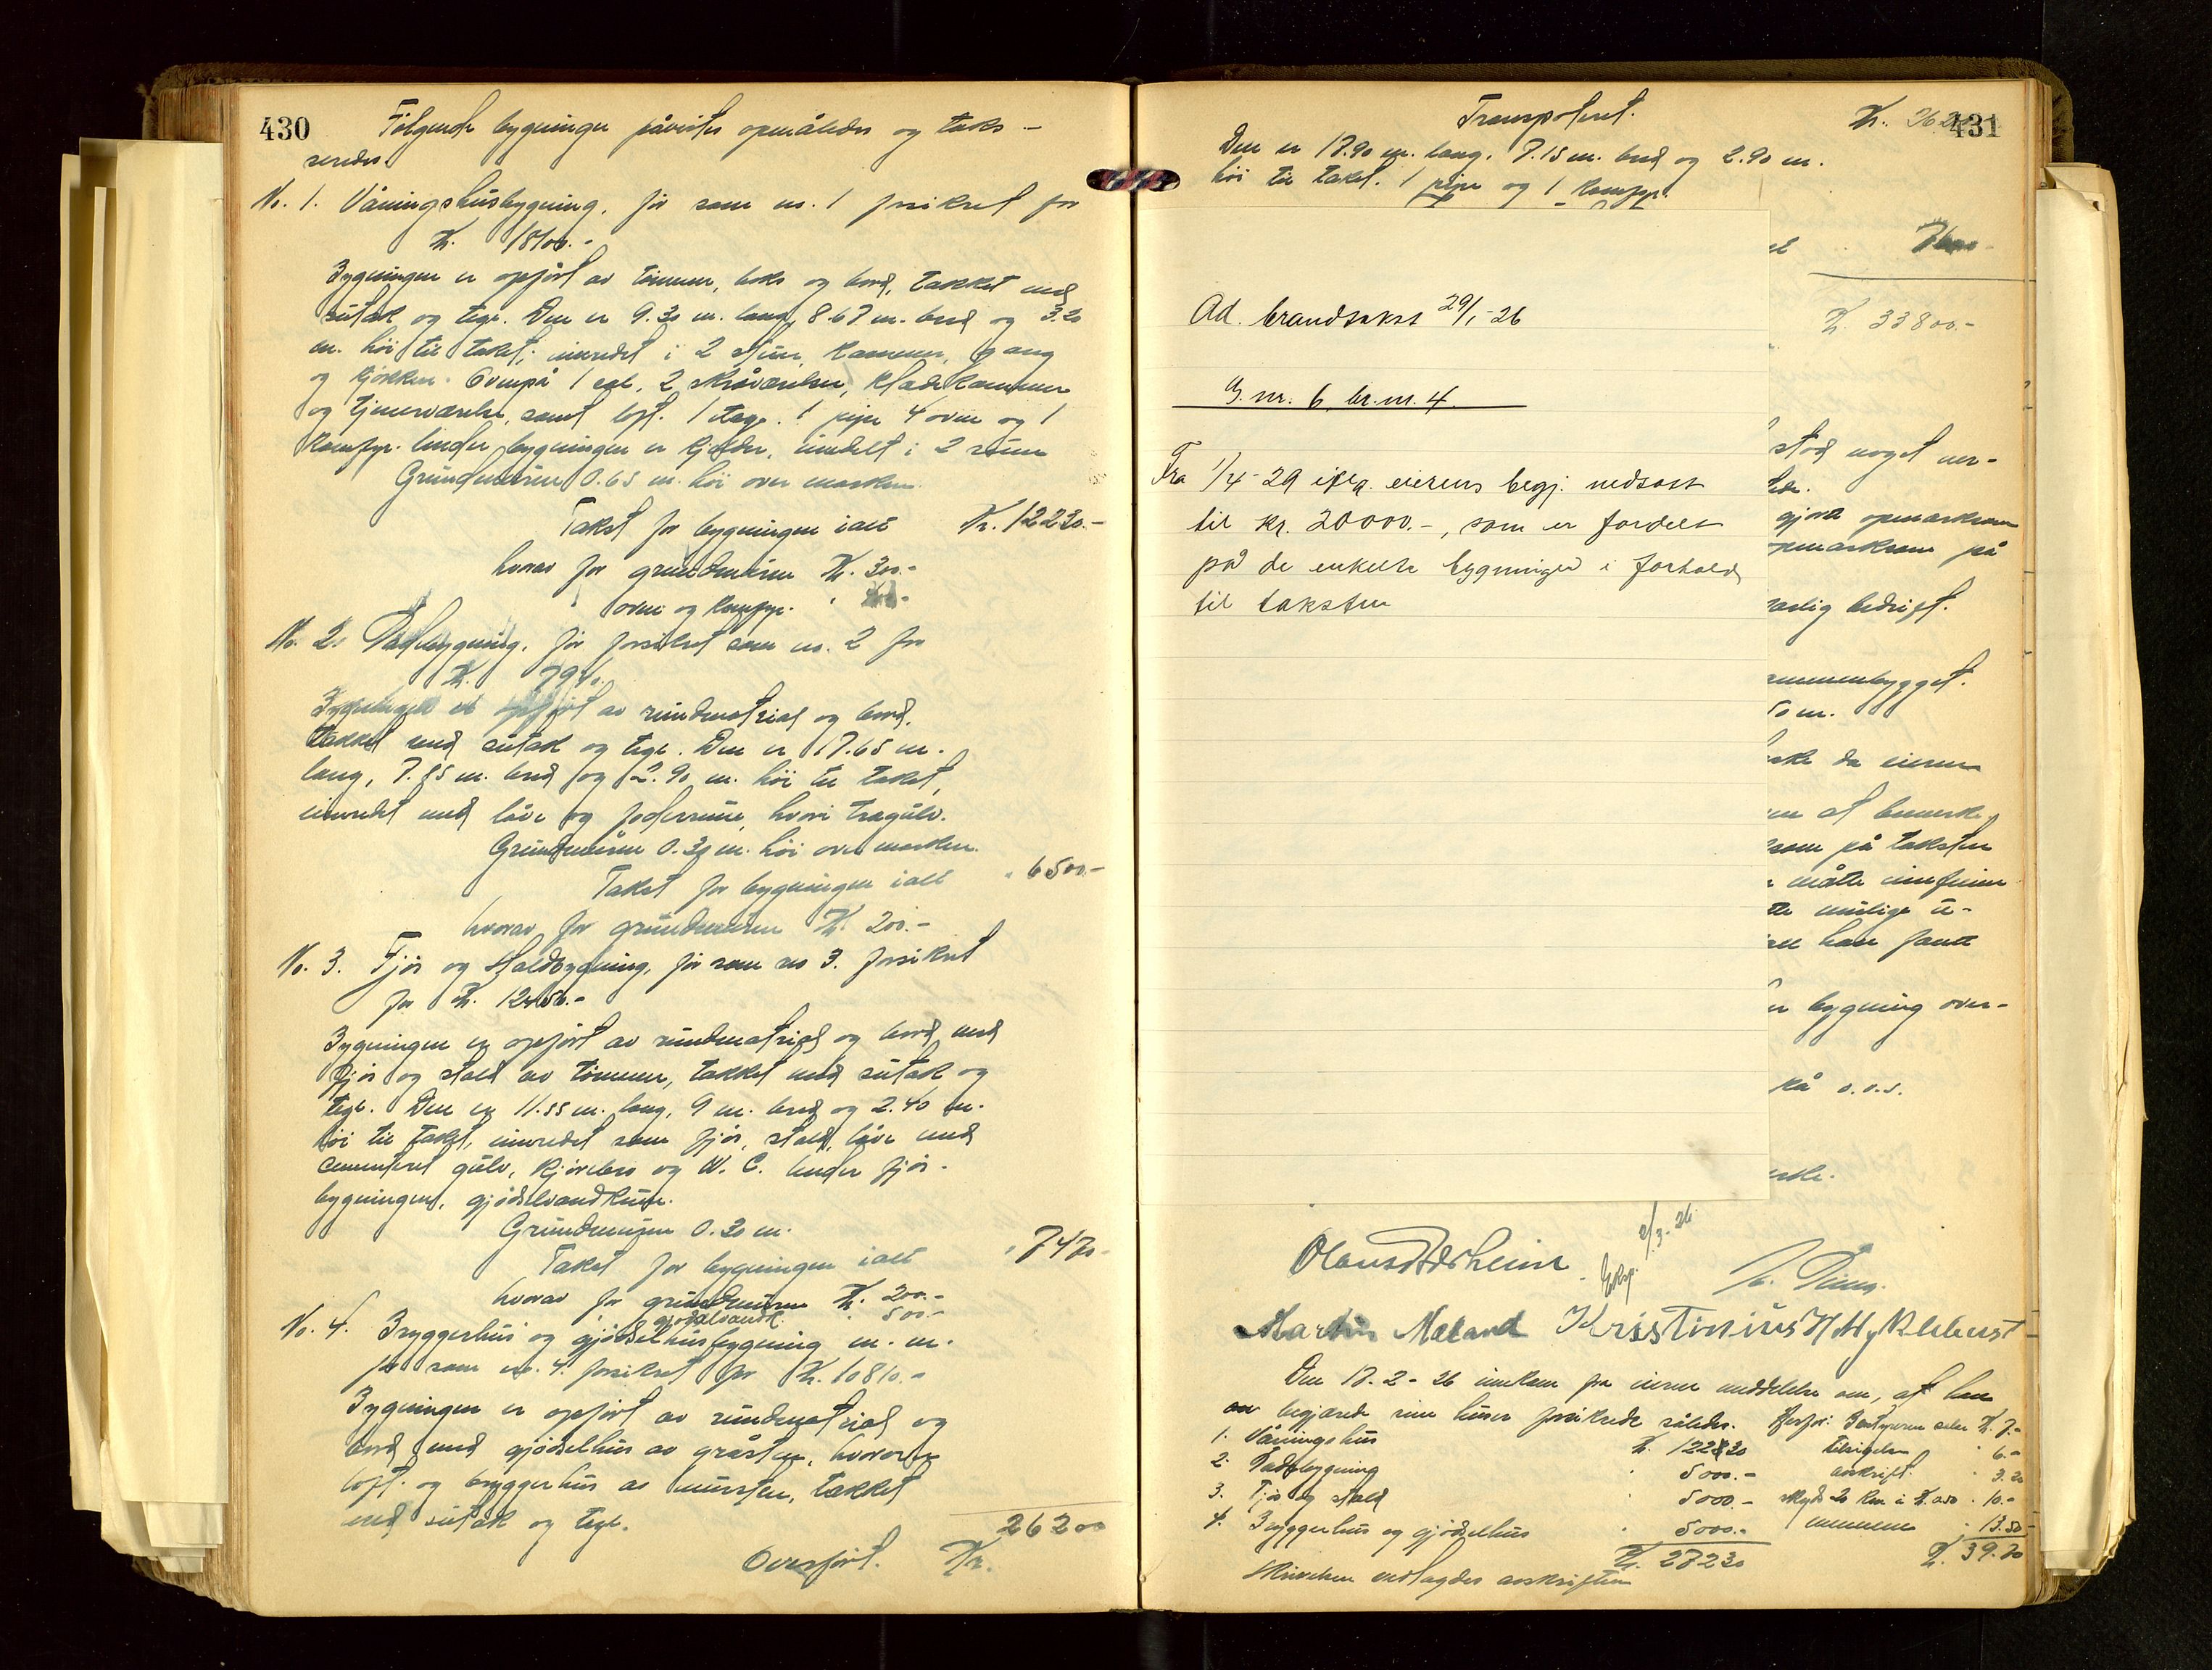 430
Følgende bygninger påvistes opmåledes og taks-
seredes.
No. 1. Våningshusbygning, før som no. 1 forsikret for
Kr. 18100.-
Bygningen er opført av tømmer, boks og bord, tækket med
sutak og tegl. Den er 9.30 m. lang, 8.67 m. bred og 3.20
m. høi til taket; innredet i 2 stuer, kammer, gang
og kjøkken. Ovenpå 1 sal, 2 skråværelser, klædekammer
og tjenerværelse, samt loft. 1 etage. 1 pipe 4 ovne og 1
komfyr. Under bygningen er kjelder, inndelt i 2 rum
Grundmuren 0.65 m. høi over marken.
Takst for bygningen ialt Kr. 12230.-
hvorav for grundmuren Kr. 300.-
ovne og komfyr. "
No. 2. Ladebygning, før forsikret som no. 2 for
Kr.
Bygningen er opført av rundmaterial og bord,
tækket med sutak og tegl. Den er 17.65 m.
lang, 7.85 m. bred og 2.90 m. høi til taket,
innredet med låve og foderrum, hvori trægulv.
Grundmuren 0.30 m. høi over marken.
Takst for bygningen ialt " 6500.-
hvorav for grundmuren Kr. 200.-
No. 3. Fjøs og staldbygning, før som no 3. forsikret
for Kr. 12450.-
Bygningen er opført av rundmaterial og bord med
fjøs og stald av tømmer, tækket med sutak og
tegl. Den er 11.55 m. lang, 9 m. bred og 2.40 m.
høi til taket, innredet som fjøs, stald, låve med
cementeret gulv, kjørebro og W. C. Under fjøs-
bygningen, gjødselvandkum.
Grundmuren 0.30 m.
Takst for bygningen ialt " 7470-
hvorav for grundmuren Kr. 200.-
gjødselvandk. " 500.-
No. 4. Bryggerhus og gjødselhusbygning m. m.
før som no. 4. forsikret for Kr. 10810.-
Bygningen er opført av rundmaterial og
bord med gjødselhus av gråsten, hvorover
loft og bryggerhus av mursten, tækket
med sutak og tegl.
Overført. Kr. 26200
Transporteret. Kr. 431
Den er 17.90 m. lang, 7.15 m. bred og 2.90 m.
høi til taket. 1 pipe og 1 komfyr.
Kr. 33800.-
Ad. brandtakst 29/1-26
G. nr. 6, br. nr. 4.
Fra 1/4-29 iflg. eierens begj. nedsatt
til kr. 20000.-, som er fordelt
på de enkelte bygninger i forhold
til taksten
stod noget ner-
gjort opmerksom
opmerksom på
farlig bedrift.
sammenbygget.
50 m.
ske da eieren
at bemerke,
som på taksten
måtte innfinne
mulige u-
han fandt
bygning over-
på o.s.v.
Exp. 2/3-26.
Martin Mæland Kristinius H. Myklebust
Den 17.2-26 innkom fra eieren meddelelse om, at han
begjærede sine huser forsikrede således.
1. Våningshus Kr. 12230
2. Ladebygning " 5000.-
3. Fjøs og stald " 5000.-
4. Bryggerhus og gjødselhus " 5000.-
Kr. 27230
Kr. 7.-
tilsigelse " 6.-
avskrift. " 3.20
skyds 20 km à Kr. 0.50 " 10.-
mennene " 13.50
Kr. 39.70
Skrivelsen vedlagdes avskriften